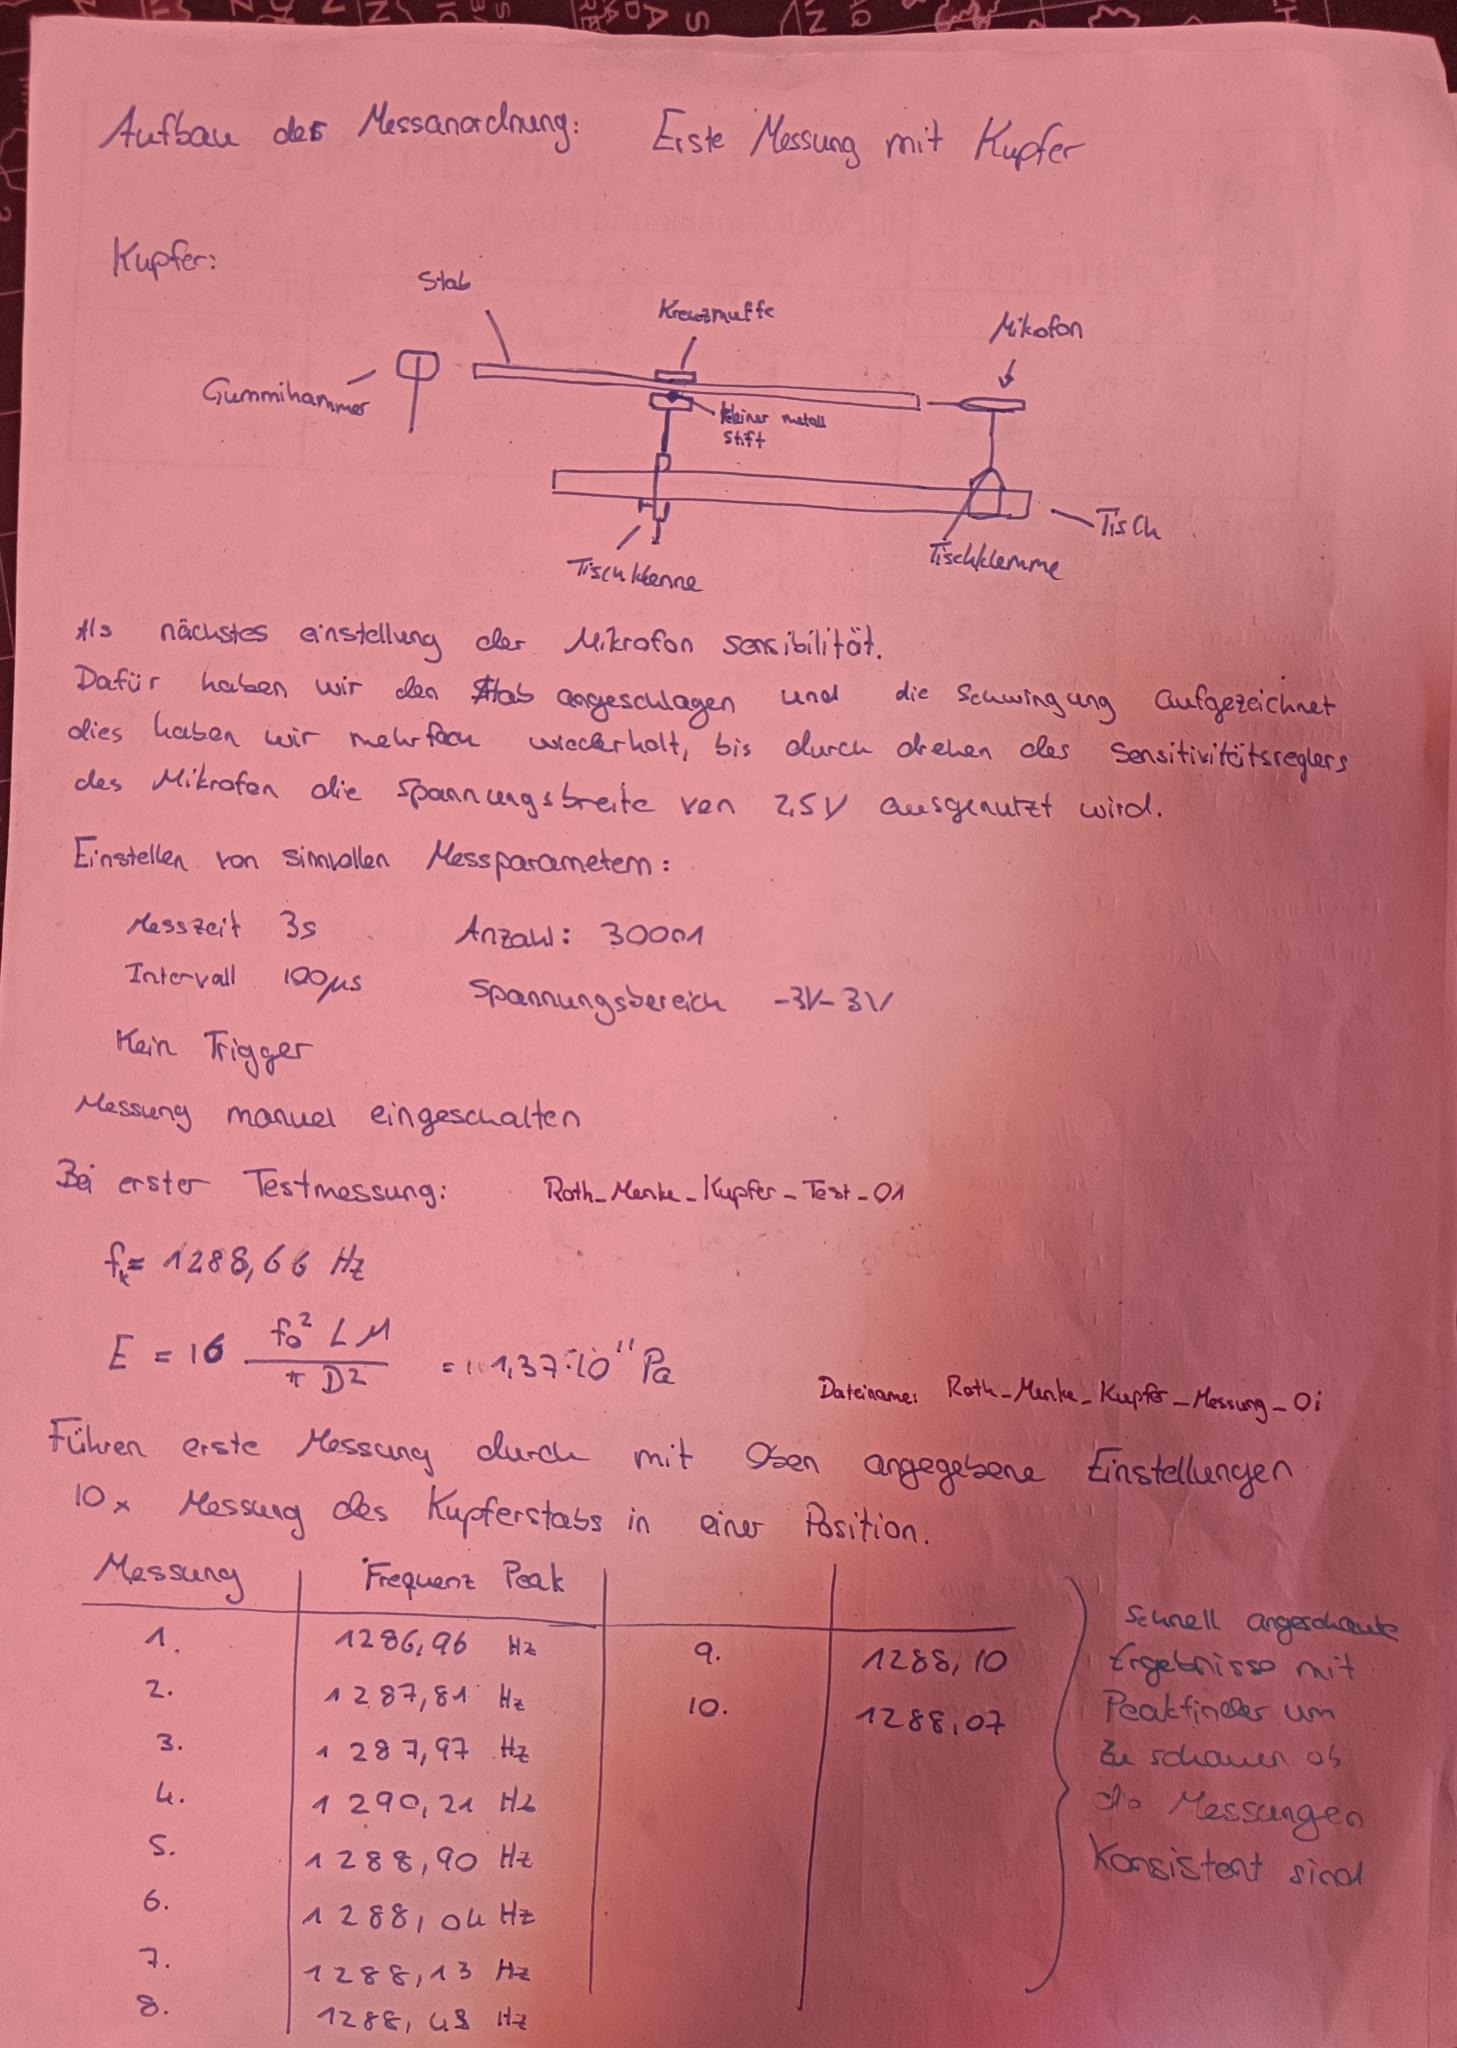 Aufbau der Messanordnung: Erste Messung mit Kupfer
Kupfer:
Stab
Kreuzmuffe
Mikofon
Gummihammer
kleiner metall
stift
Tisch
Tischklemme
Als nächstes einstellung der Mikrofon sensibilität.
Dafür haben wir den Stab angeschlagen und die Schwingung aufgezeichnet
dies haben wir mehrfach wiederholt, bis durch drehen des Sensitivitätsreglers
des Mikrofon die Spannungsbreite von 2,5V ausgenutzt wird.
Einstellen von sinnvollen Messparametern:
Messzeit 3s Anzahl: 30001
Intervall 100µs Spannungsbereich -3V-3V
Kein Trigger
Messung manuel eingeschalten
Bei erster Testmessung: Roth_Menke_Kupfer_Test_01
fₖ= 1288,66 Hz
E = 16 f₀² L M / π D² = 1,37·10¹¹ Pa
Dateiname: Roth_Menke_Kupfer_Messung_0i
Führen erste Messung durch mit Oben angegebene Einstellungen
10x Messung des Kupferstabs in einer Position.
Messung Frequenz Peak
1. 1286,96 Hz 9. 1288,10
2. 1287,81 Hz 10. 1288,07
3. 1287,97 Hz
4. 1290,21 Hz
5. 1288,90 Hz
6. 1288,04 Hz
7. 1288,13 Hz
8. 1288, Hz
Schnell angeschaute
Ergebnisse mit
Peakfinder um
zu schauen ob
die Messungen
Konsistent sind